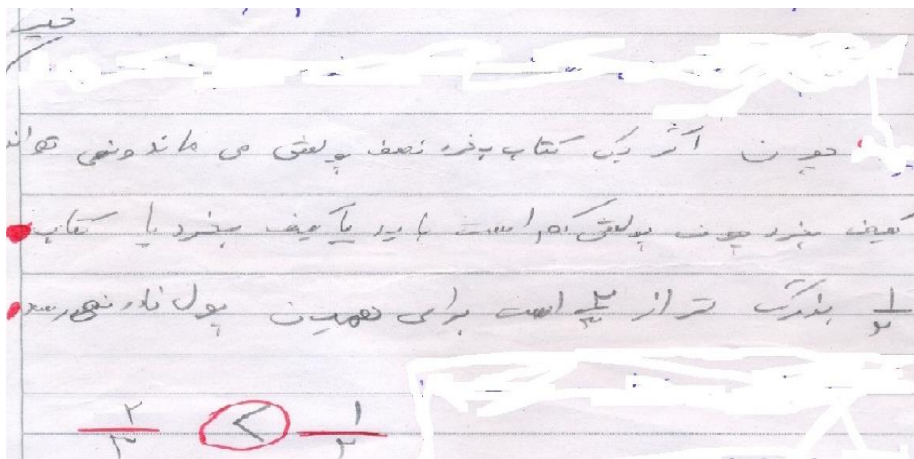 خیر
چون اگر یک کتاب بخرد نصف پولش می ماند و نمی تواند
کیف بخرد چون پولش کم است باید یا کیف بخرد یا کتاب
۱/۲ بزرگ تر از ۲/۳ است برای همین پول نادر نمی‌رسد
۲/۳ < ۱/۲